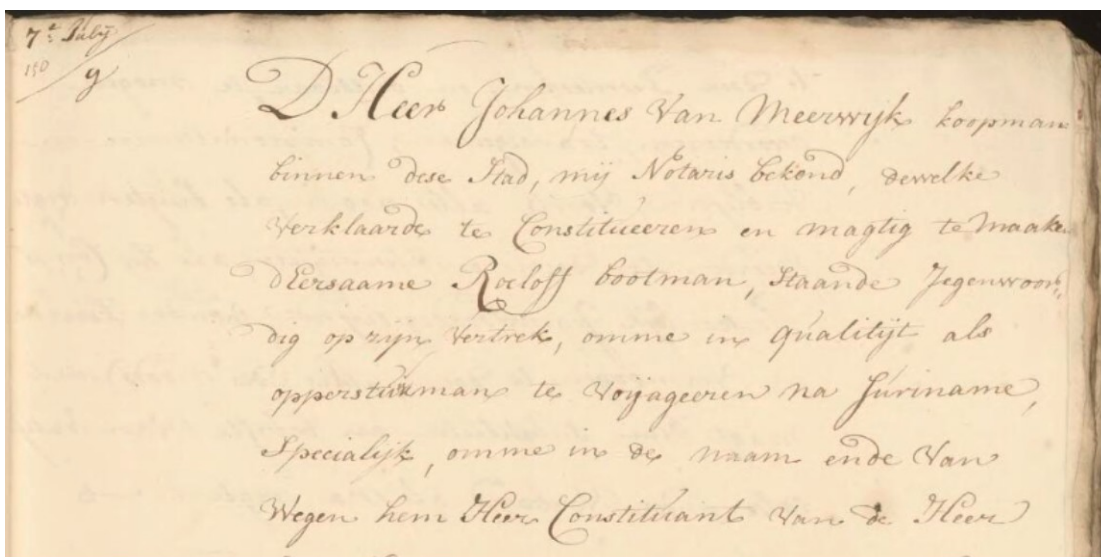 7e July
150
9
D Heer Johannes Van Meerwijk koopman
binnen dese Stad, mij Notaris bekend, dewelke
Verklaarde te Constitueeren en magtig te maake
dEersaame Roeloff bootman, Staande Jegenwoor,
dig op zijn Vertrek, omme in qualitijt als
opperstuurman te Voijageeren na Suriname,
Specialijk, omme in de naam ende Van
Wegen hem Heer Constituant Van de Heer